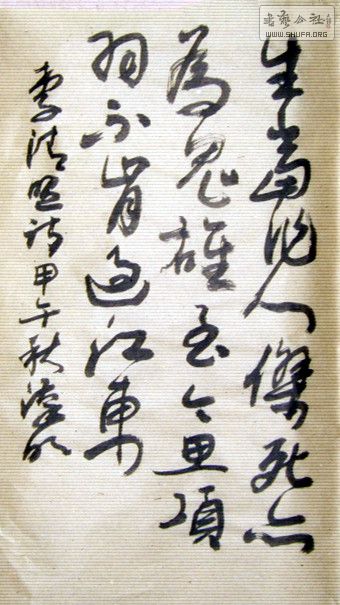 生當作人傑死亦
為鬼雄至今思項
羽不肯過江東
李清照詩甲午秋
書藝公社
WWW.SHUFA.ORG